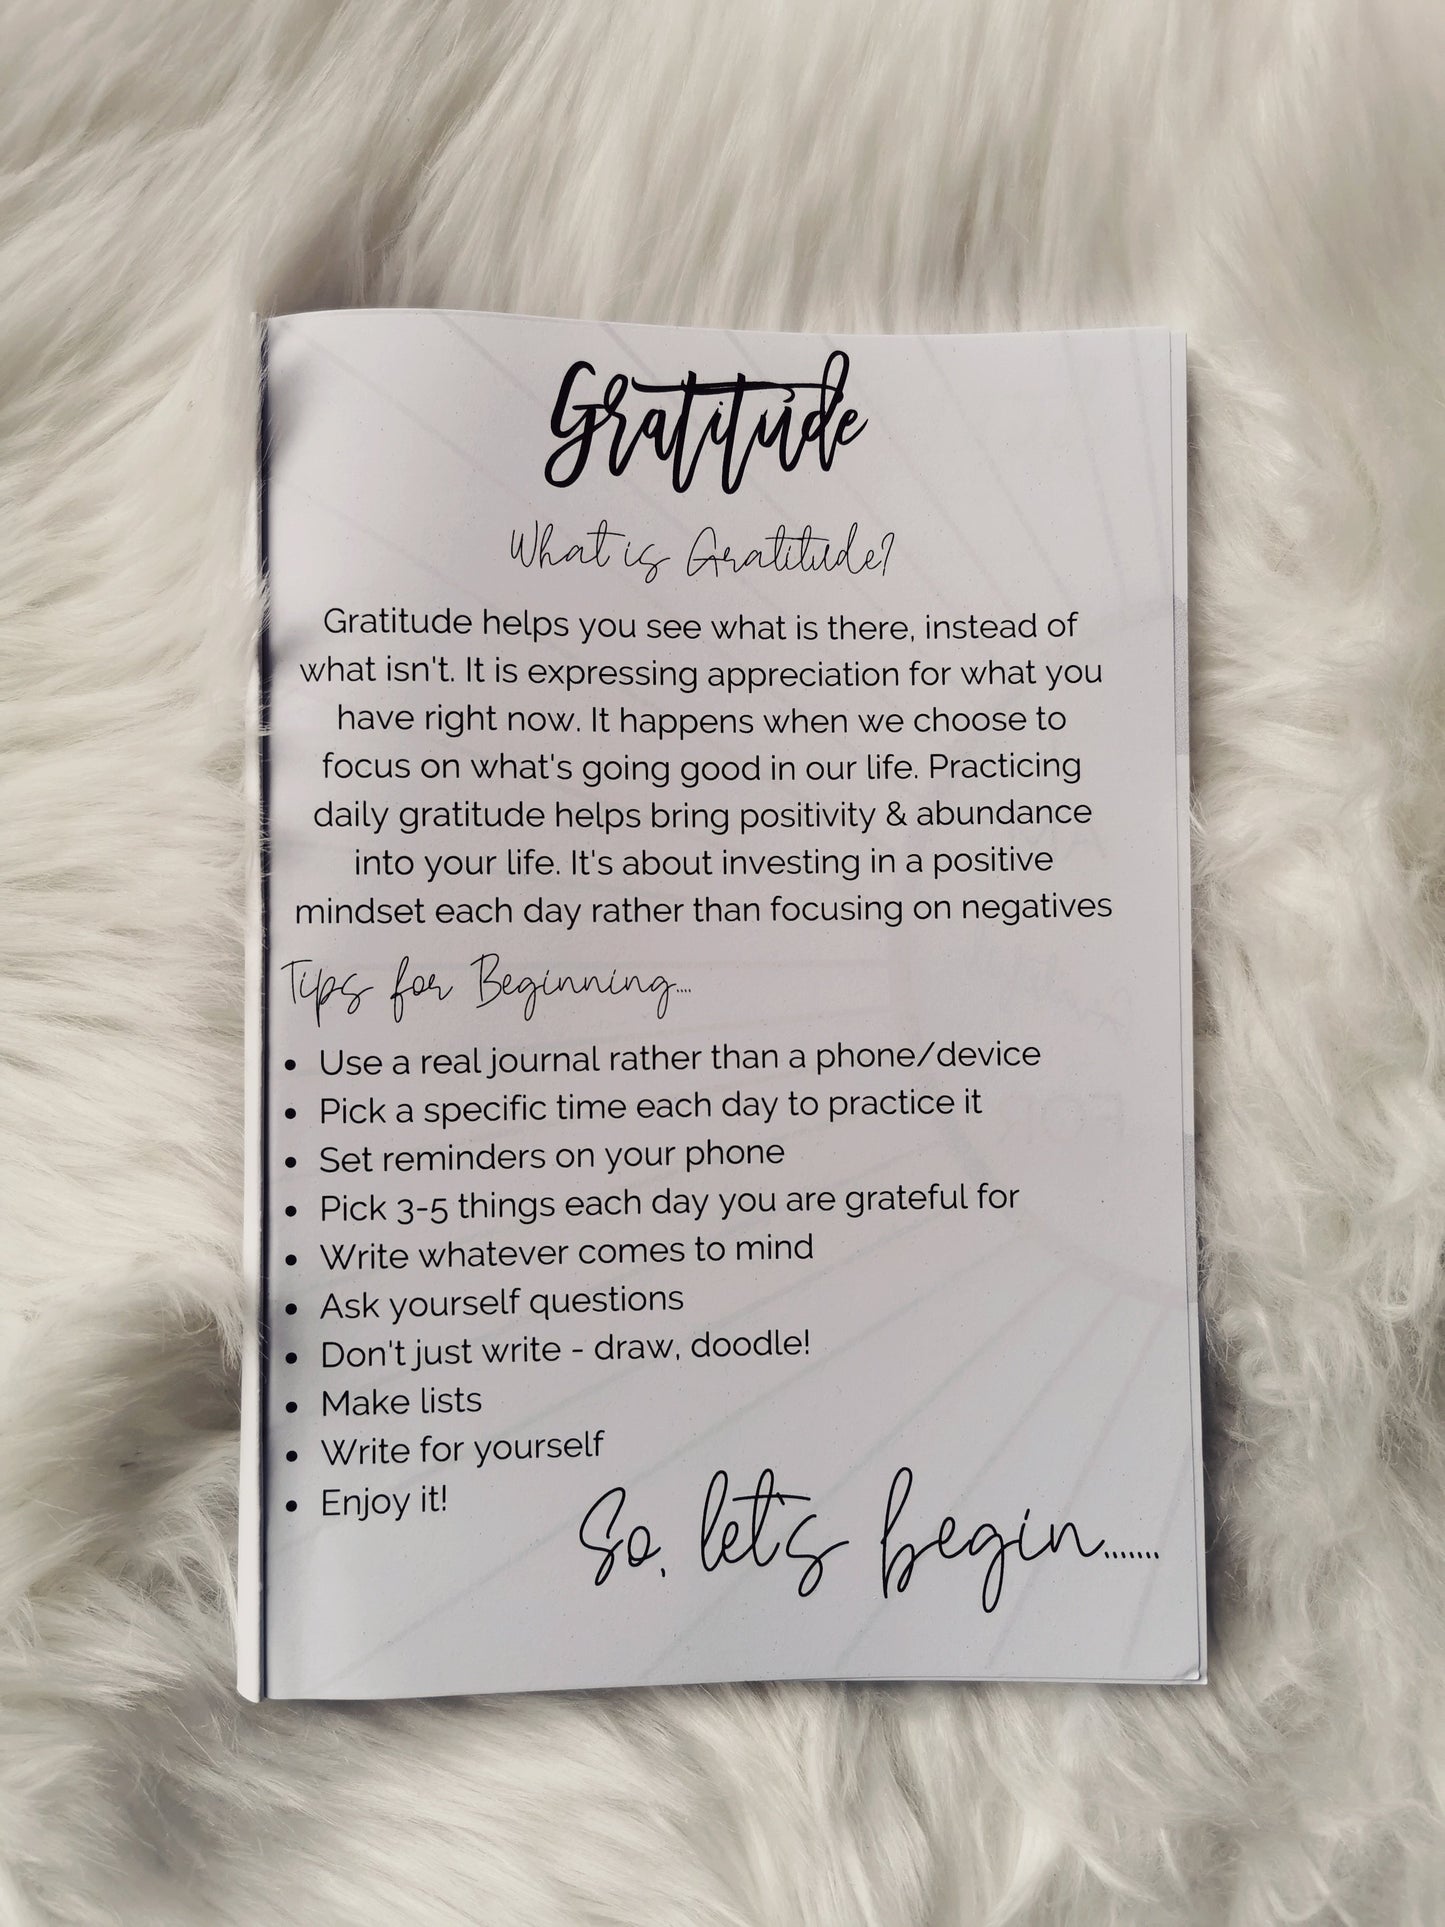 Gratitude
What is Gratitude?
Gratitude helps you see what is there, instead of
what isn't. It is expressing appreciation for what you
have right now. It happens when we choose to
focus on what's going good in our life. Practicing
daily gratitude helps bring positivity & abundance
into your life. It's about investing in a positive
mindset each day rather than focusing on negatives
Tips for Beginning....
• Use a real journal rather than a phone/device
• Pick a specific time each day to practice it
• Set reminders on your phone
• Pick 3-5 things each day you are grateful for
• Write whatever comes to mind
• Ask yourself questions
• Don't just write - draw, doodle!
• Make lists
• Write for yourself
• Enjoy it!
So, let's begin.......